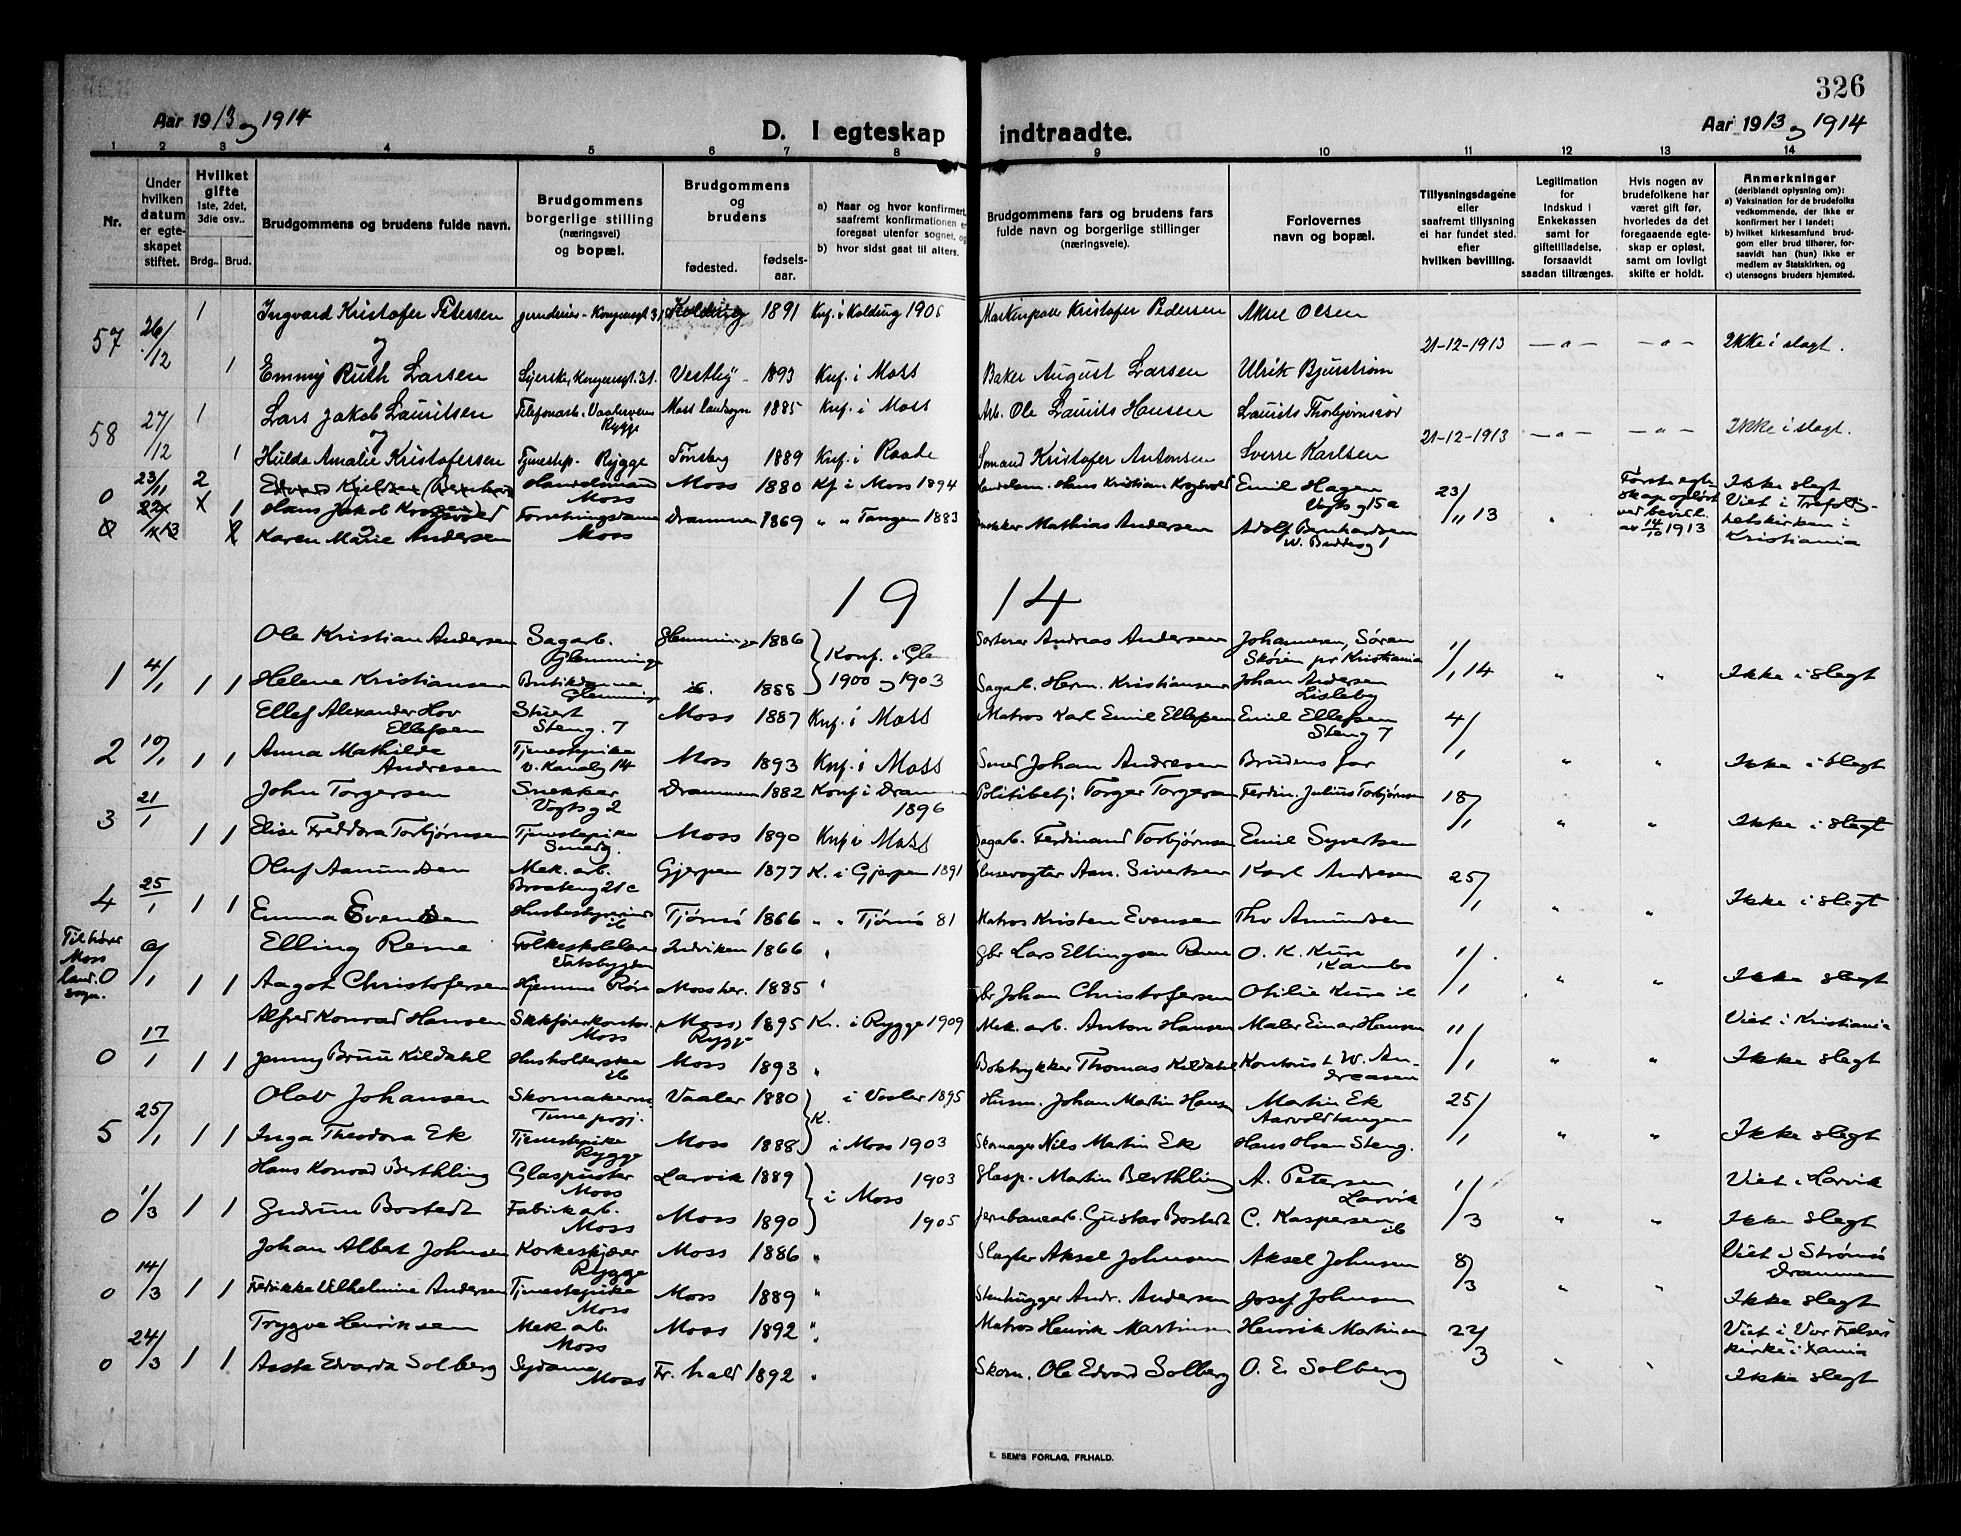 326
Aar 1913 og 1914
D. I egteskap indtraadte.
Aar 1913 og 1914
1 2 3 4 5 6 7 8 9 10 11 12 13 14
Nr.
Under hvilken datum er egteskapet stiftet.
Hvilket gifte
1ste, 2det, 3die osv..
Brdg.. Brud.
Brudgommens og brudens fulde navn.
Brudgommens borgerlige stilling (næringsvei) og bopæl.
Brudgommens og brudens
fødested.
fødsels-aar.
a) Naar og hvor konfirmert, saafremt konfirmationen er foregaat utenfor sognet, og
b) hvor sidst gaat til alters.
Brudgommens fars og brudens fars fulde navn og borgerlige stillinger (næringsveie).
Forlovernes navn og bopæl.
Tillysningsdagene eller saafremt tillysning ei har fundet sted. efter hvilken bevilling.
Legitimation for Indskud i Enkekassen samt for giftetilladelse, forsaavidt saadan tiltrænges.
Hvis nogen av brudefolkene har været gift før, hvorledes da det foregaaende egteskap er opløst, samt om lovligt skifte er holdt.
Anmerkninger
(deriblandt oplysning om):
a) Vaksination for de brudefolks vedkommende, der ikke er konfirmert her i landet;
b) hvilket kirkesamfund brudgom eller brud tilhører, forsaavidt han (hun) ikke er medlem av Statskirken, og
c) utensogns bruders hjemsted.
57 26/12 1 Ingvard Kristofer Petersen Kongensgt. 31 Kolding 1891 Knf. i Kolding 1906 Kristofer Pedersen Aksel Olsen
21-12-1913 — " — — " — Ikke i slegt.
1 Emmy Ruth Larsen Syerske, Kongensgt. 31. Vestby 1893 Knf. i Moss Baker August Larsen Ulrik Bjurstrøm
58 27/12 1 Lars Jakob Lauritsen Telefonarb. Rygge Moss landsogn 1885 Knf. i Moss Arb. Ole Laurits Hansen Laurits Thorbjørnsrød
21-12-1913 — " — — " — Ikke i slegt.
1 Hulda Amalie Kristofersen Tjenestep. Rygge Tønsberg 1889 Knf. i Raade Sømand Kristofer Antonsen Sverre Karlsen
0 23/11 2 Hans Jakob Krogsvold Handelsmand Moss Moss 1880 Kf. i Moss 1894 Handelsm. Hans Kristian Krogsvold Emil Hagen Vogtsg 15a 23/11 13 " Første egteskap opløst ved bevil. av 14/10 1913 Ikke slegt Viet i Trefoldighetskirken i Kristiania
1 Karen Marie Andersen Forretningsdame Moss Drammen 1869 " " Tangen 1883 Snekker Mathias Andersen Adolf Bernhardsen W. Buddesg 1
1914
Ole Kristian Andersen Sagarb. Glemminge Glemminge 1886 Konf. i Glem 1900 og 1903 Sorterer Andreas Andersen Johannesen, Søren Skøien pr Kristiania
1 4/1 1 1 Helene Kristiansen Butikdame Glemminge ib. 1888 Sagarb. Herm. Kristiansen Johan Andersen Lisleby 1/1 14 " " Ikke i slegt
Ellef Alexander Hov Ellefsen Stuert Steng. 7 Moss 1887 Knf. i Moss Matros Karl Emil Ellefsen Emil Ellefsen Steng 7 4/1
2 10/1 1 1 Anna Mathilde Andresen Tjenestepike v. Kanalg 14 Moss 1893 Knf. i Moss Smed Johan Andresen Brudens far " " Ikke i slegt
3 21/1 John Torgersen Snekker Vogtsg 2 Drammen 1882 Konf i Drammen 1896 Politibetj. Torger Torgersen Ferdin. Julius Torbjørnsen 18/1
1 1 Elise Freddora Torbjørnsen Tjenestepike Smedg. Moss 1890 Knf i Moss Sagarb. Ferdinand Torbjørnsen Emil Syvertsen " " Ikke i slegt
Oluf Aanundsen Mek. arb. Gjerpen 1877 K. i Gjerpen 1891 Slusevogter Aan. Sivertsen Karl Andresen 25/1
4 25/1 1 1 Emma Evensen Husbestyrerinde ib Tjømø 1866 " " Tjømø 81 Matros Kristen Evensen Thv Amundsen " " Ikke i slegt
Tilhører Moss land. sogn.
0 9/1 Elling Reme Folkeskolelærer Indviken 1866 " Gbr Lars Ellingsen Reme O. K. Kure Kambo 1/1
1 1 Aagot Christofersen Hjemme Røre Moss her. 1885 " Gbr Johan Christofersen Otilie Kure ib " " Ikke slegt
0 17/1 Alfred Konrad Hansen Moss (Moss) Rygge 1895 K. i Rygge 1909 Mek. arb. Anton Hansen Maler Einar Hansen 11/1 Viet i Kristiania
1 1 Jenny Bruu Kildahl Husholderske ib Moss 1893 " Boktrykker Thomas Kildahl Kontorist W. Andreasen " " Ikke slegt
5 25/1 Olav Johansen Skomakerm. Vaaler 1880 K. i Vaaler 1895 Husm. Johan Martin Hansen Martin Ek Aarvoldtangen 25/1
1 1 Inga Theodora Ek Tjenestepike Rygge Moss 1888 i Moss 1903 Skomager Nils Martin Ek Hans Olsen Steng. " " Ikke slegt
Hans Konrad Berthling Glaspuster Moss Larvik 1889 i Moss 1903 Glasp. Martin Berthling A. Petersen Larvik Viet i Larvik
0 1/3 1 1 Gudrun Bostedt Fabrikarb. Moss Moss 1890 1905 Jernbanearb. Gustav Bostedt C. Kaspersen ib 1/3 " " Ikke slegt
Johan Albert Johnsen Korkeskjærer Rygge Moss 1886 " Slagter Aksel Johnsen Aksel Johnsen 8/3 Viet i Strømsø Drammen
0 14/3 1 1 Fredrikke Vilhelmine Andersen Tjenestepike Moss Moss 1889 " Stenhugger Andr. Andersen Josef Johnsen " " Ikke slegt
Trygve Henriksen Mek arb. Moss Moss 1892 " Matros Henrik Martinsen Henrik Martinsen 22/3 Viet i Vor Frelsers kirke i Xania
0 24/3 1 1 Aasta Edvarda Solberg Sydame Moss Fr. hald 1892 " Skom. Ole Edvard Solberg O. E. Solberg " " Ikke slegt
E. SEM'S FORLAG, FR.HALD.